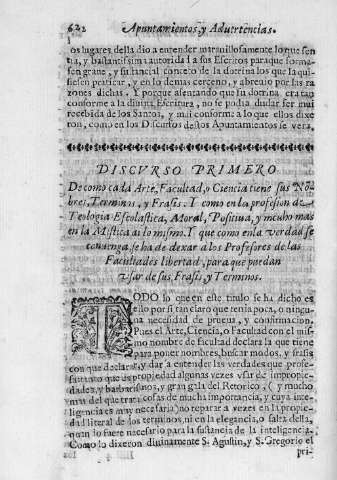 622 Apuntamientos y Aduertencias.
os lugares della dio a entender marauillosamente lo que sen
tia, y bastantissima autorida i a sus Escritos para que forma-
sen graue, y sustancial conceto de la dotrina los que la qui-
siesen praticar, y en lo demas cerceno, y abreuio por las ra
zones dichas. Y porque asentando que su dotrina era tan
conforme a la diuina Escritura, no se podia dudar ser mui
recebida de los Santos, y mui conforme a lo que ellos dixe
ron, como en los Discursos destos Apuntamientos se vera.
DISCVRSO PRIMERO
De como cada Arte, Facultad, o Ciencia tiene sus No-
bres, Terminos, y Frasis. Y como en la profesion de
Teologia Escolastica, Moral, Positiua, y mcuho mas
en la Mistica ai lo mismo. Y que como en la verdad se
conuenga, se ha de dexar a los Profesores de las
Facultades libertad, para que puedan
vsar de sus Frasis, y Terminos.
TODO lo que en este titulo se ha dicho es
ello por si tan claro que tenia poca, o ningu-
na necesidad de prueua, y confirmacion.
Pues el Arte, Ciencia, o Facultad con el mis-
mo nombre de facultad declara la que tiene
para poner nombres, buscar modos, y frasis
con que declarar, y dar a entender las verdades que profe-
sa: tanto que es propiedad algunas vezes vsar de impropie-
dades, y barbarismos, y gran gala del Retorico, (y mucho
mas del que trata cosas de mucha importancia, y cuya inte-
ligencia es muy necesaria) no reparar a vezes en la propie-
dad literal de los terminos, ni en la elegancia, o falta della,
quando fuere necesario para la sustancia de la inteligencia.
Como lo dixeron diuinamente S. Agustin, y S. Gregorio el
pri-